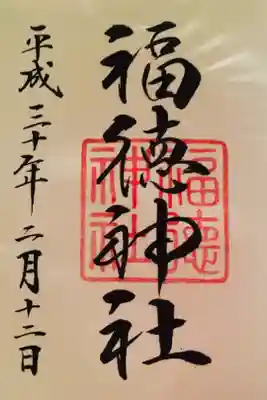 福徳神社
平成三十年二月十二日
福徳
神社